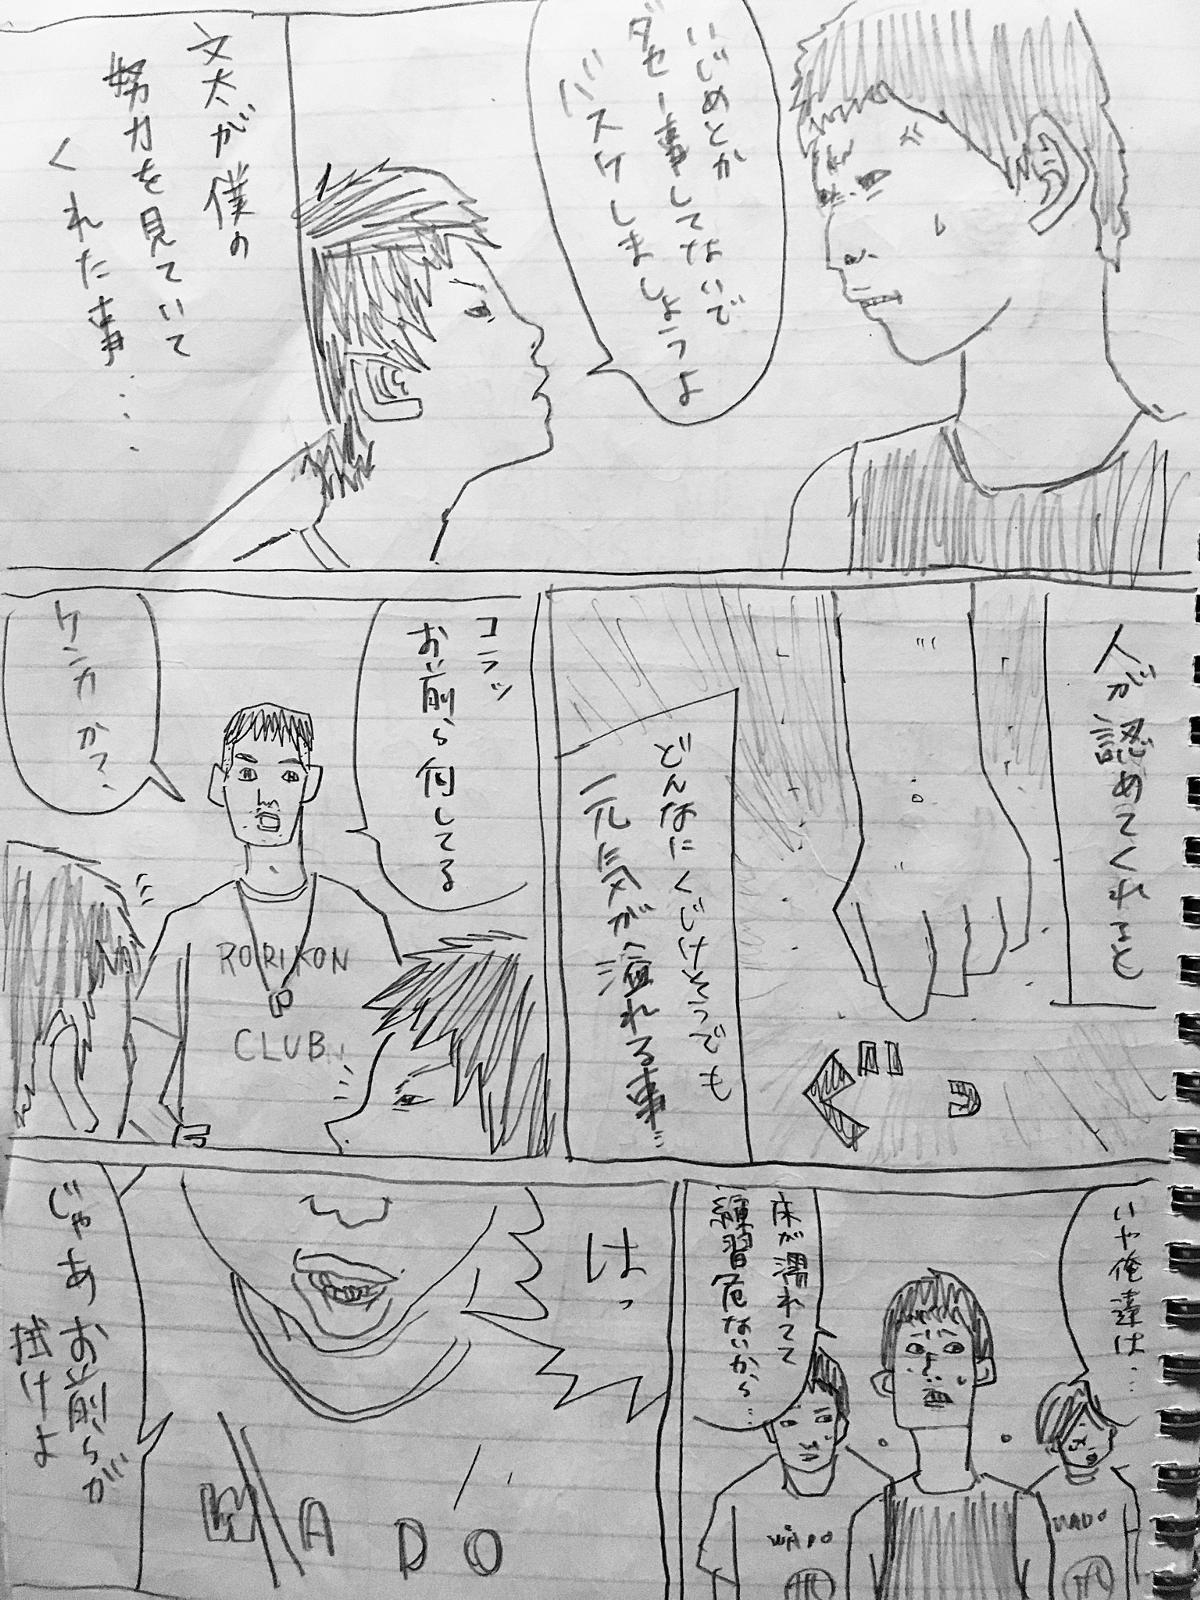 いじめとか
ダセー事してないで
バスケしましょうよ
文太が僕の
努力を見ていて
くれた事...
人が認めてくれると
どんなにくじけそうでも
元気が溢れる事...
ぐ
コラッ
お前ら何してる
ケンカか?
RORIKON
CLUB
いや俺達は...
床が濡れてて
練習危ないから...
WADO
WADO
はっ
じゃあお前らが
拭けよ
WADO